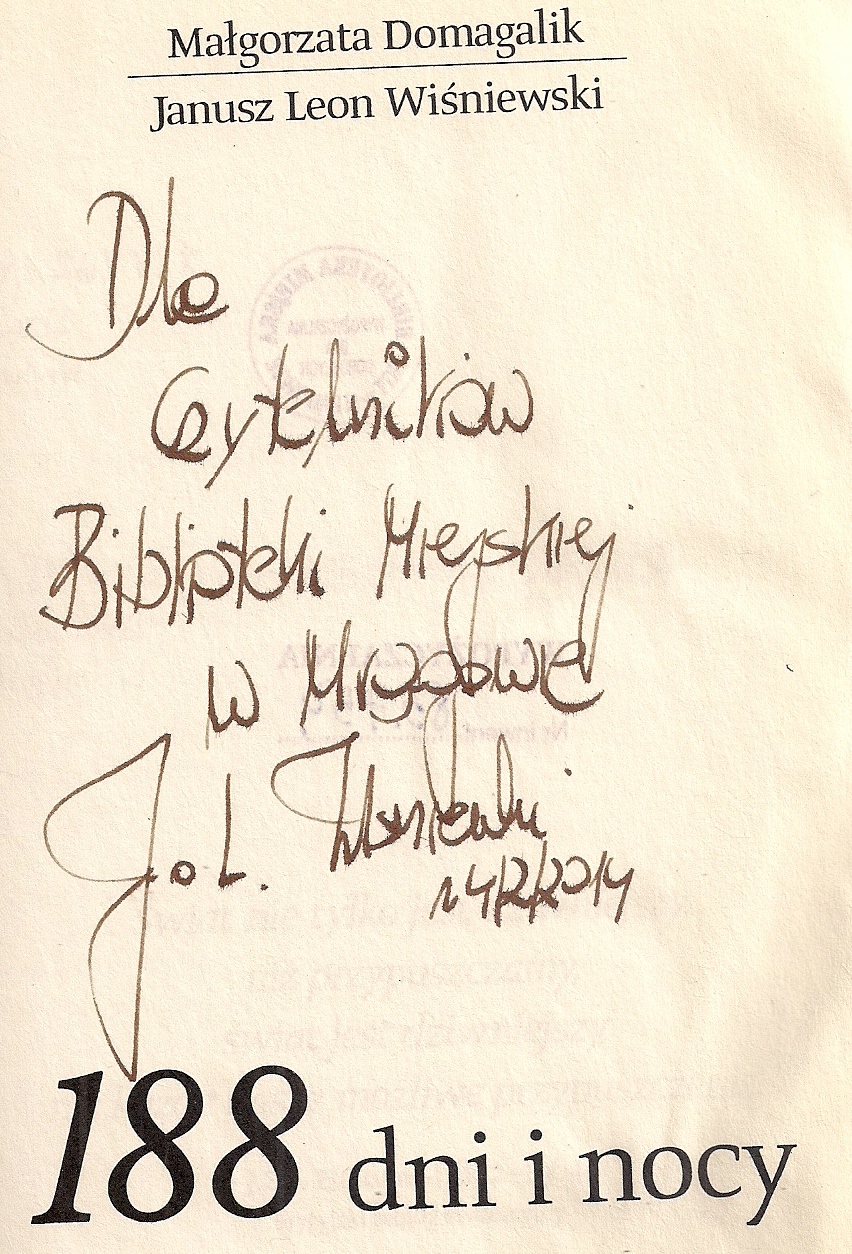 Małgorzata Domagalik
Janusz Leon Wiśniewski
Dla
Czytelników
Biblioteki Miejskiej
w Mrągowie
J. L. Wiśniewski
14/2/2014
188 dni i nocy